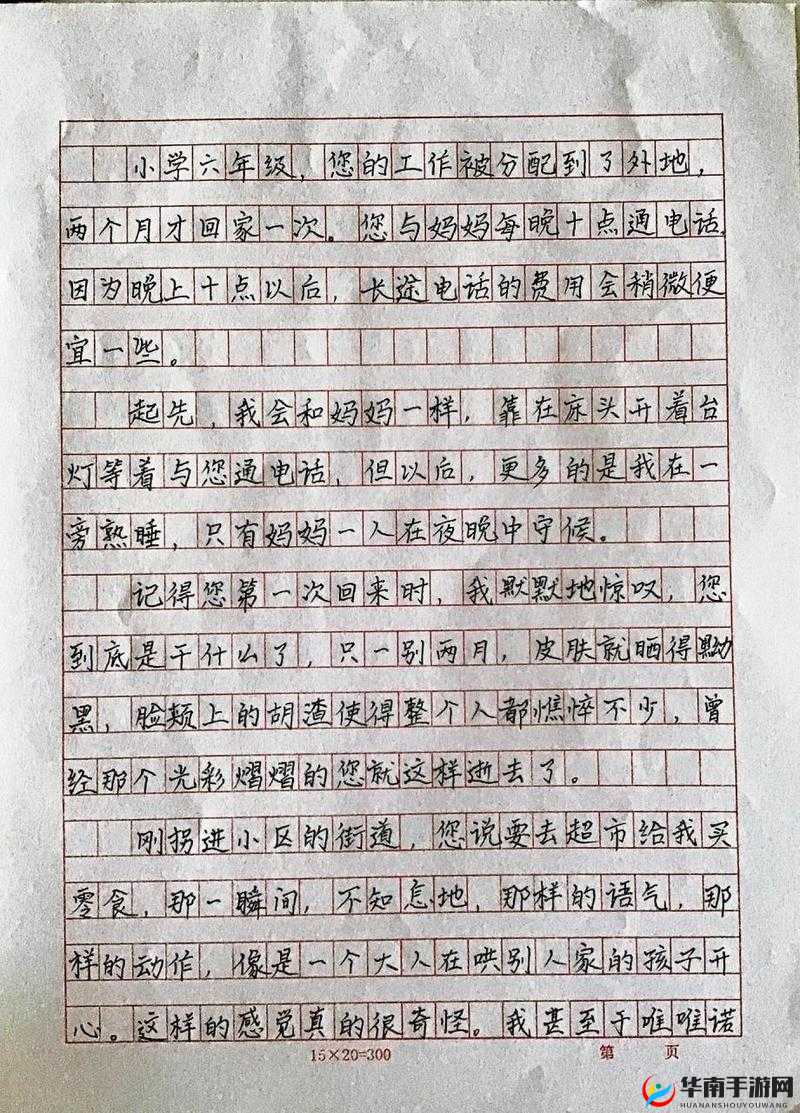 小学六年级，您的工作被分配到了外地，
两个月才回家一次。您与妈妈每晚十点通电话，
因为晚上十点以后，长途电话的费用会稍微便
宜一些。
起先，我会和妈妈一样，靠在床头开着台
灯等着与您通电话，但以后，更多的是我在一
旁熟睡，只有妈妈一人在夜晚中守候。
记得您第一次回来时，我默默地惊叹，您
到底是干什么了，只一别两月，皮肤就晒得黝
黑，脸颊上的胡渣使得整个人都憔悴不少，曾
经那个光彩熠熠的您就这样逝去了。
刚拐进小区的街道，您说要去超市给我买
零食，那一瞬间，不知怎地，那样的语气，那
样的动作，像是一个大人在哄别人家的孩子开
心。这样的感觉真的很奇怪。我甚至于唯唯诺
15×20=300 第 页
华南手游网
HUANANSHOUYOUWANG